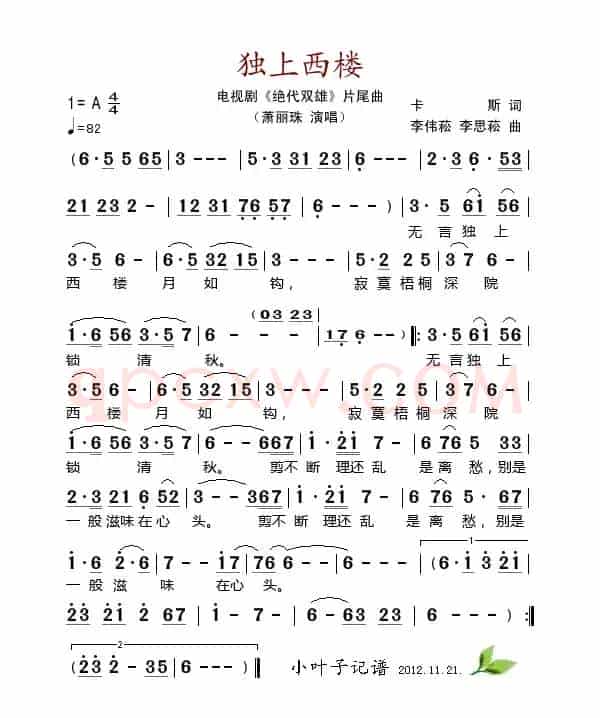 独上西楼
1=A 4/4
电视剧《绝代双雄》片尾曲
卡 斯 词
♩=82
（萧丽珠 演唱）
李伟菘 李思菘 曲
(6·5 5 65 | 3 - - - | 5·3 53 23 5 | 6 - - - | 2·3 6·53
21 23 2 - | 12 31 76 57 | 6 - - - ) | 3·5 61 56
无 言 独 上
3·5 6 - | 6·5 32 15 | 3 - - - | 3·5 3 7 6
西 楼 月 如 钩， 寂 寞 梧 桐 深 院
(03 23)
1·6 56 3·5 7 | 6 - - - | 17 6 - - ) ‖: 3·5 61 56
锁 清 秋。 无 言 独 上
3·5 6 - | 6·5 32 15 | 3 - - - | 3·5 3 7 6
西 楼 月 如 钩， 寂 寞 梧 桐 深 院
1·6 56 3·5 7 | 6 - - 667 | 1·21 7 - | 6 76 5 53
锁 清 秋。 剪不 断 理还 乱 是 离 愁，别是
2·3 21 6 52 | 3 - - 367 | 1·21 7 - | 6 76 5 53
一 般 滋味 在 心 头。 剪不 断 理还 乱 是 离 愁，别是
1·6 2·6 | 7 - - 17 | 76 6 - - | (6·1 3 21
一 般 滋 味 在心 头。
23 21 2 7 | 6 - - - | 7 - - - | 6 - 63 23 | 6 - - ) :‖
(23 2 - 35 | 6 - - - )‖
小叶子记谱 2012.11.21.
qpcxw.com